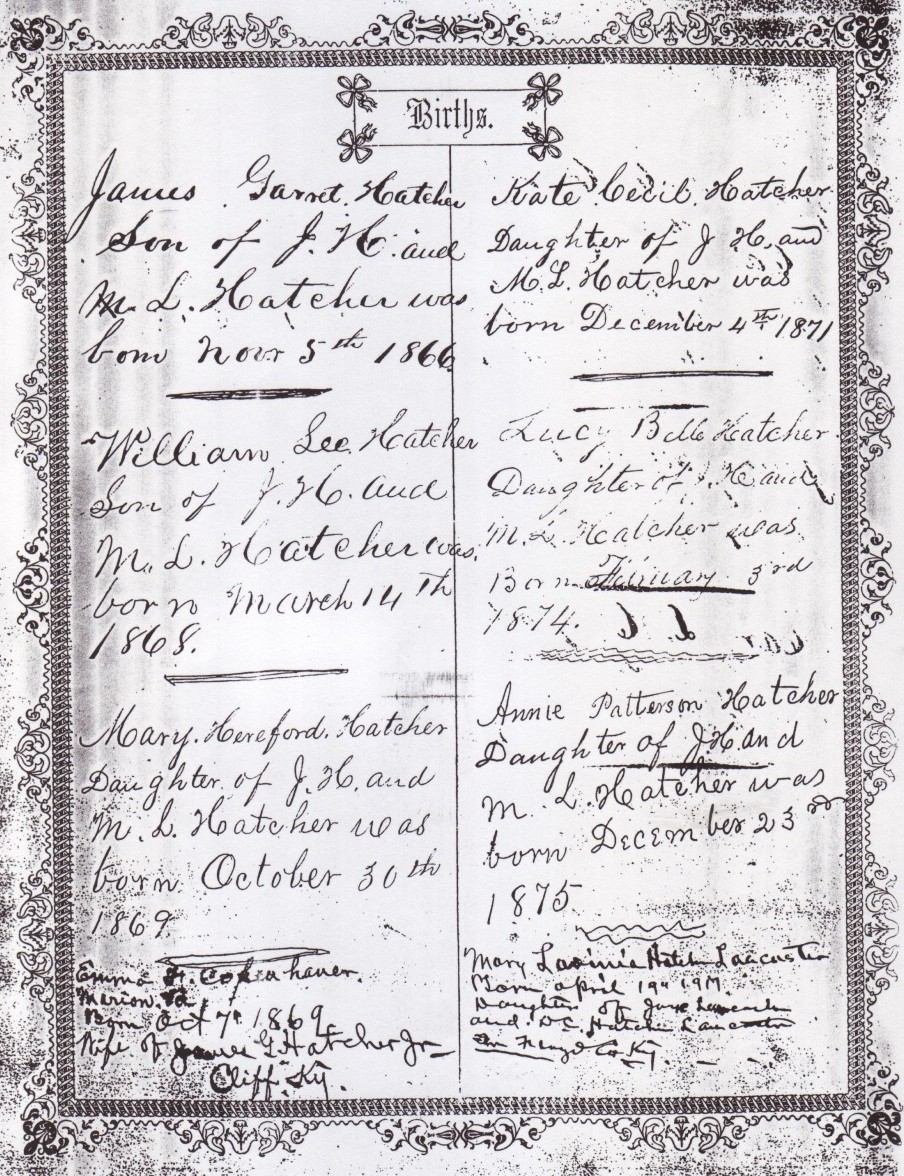 Births.
James Garret Hatcher
Son of J. H. and
M. L. Hatcher was
born Novr 5th 1866
William Lee Hatcher
Son of J. H. and
M. L. Hatcher was
born March 14th
1868.
Mary. Hereford. Hatcher
Daughter of J. H. and
M. L. Hatcher was
born October 30th
1869
Emma H.
Marion. Va.
Born Oct 7th 1869
Wife of James G. Hatcher Jr
Cliff Ky.
Kate Cecil Hatcher
Daughter of J H. and
M. L. Hatcher was
born December 4th 1871
Lucy Bell Hatcher
Daughter of J. H. and
M. L. Hatcher was
Born 3rd
1874.
Annie Patterson Hatcher
Daughter of J H. and
M. L. Hatcher was
born December 23rd
1875
Mary Hatcher Lancaster
Born April 19th
Daughter of Lancaster
and Hatcher Lancaster
Floyd Co. Ky.